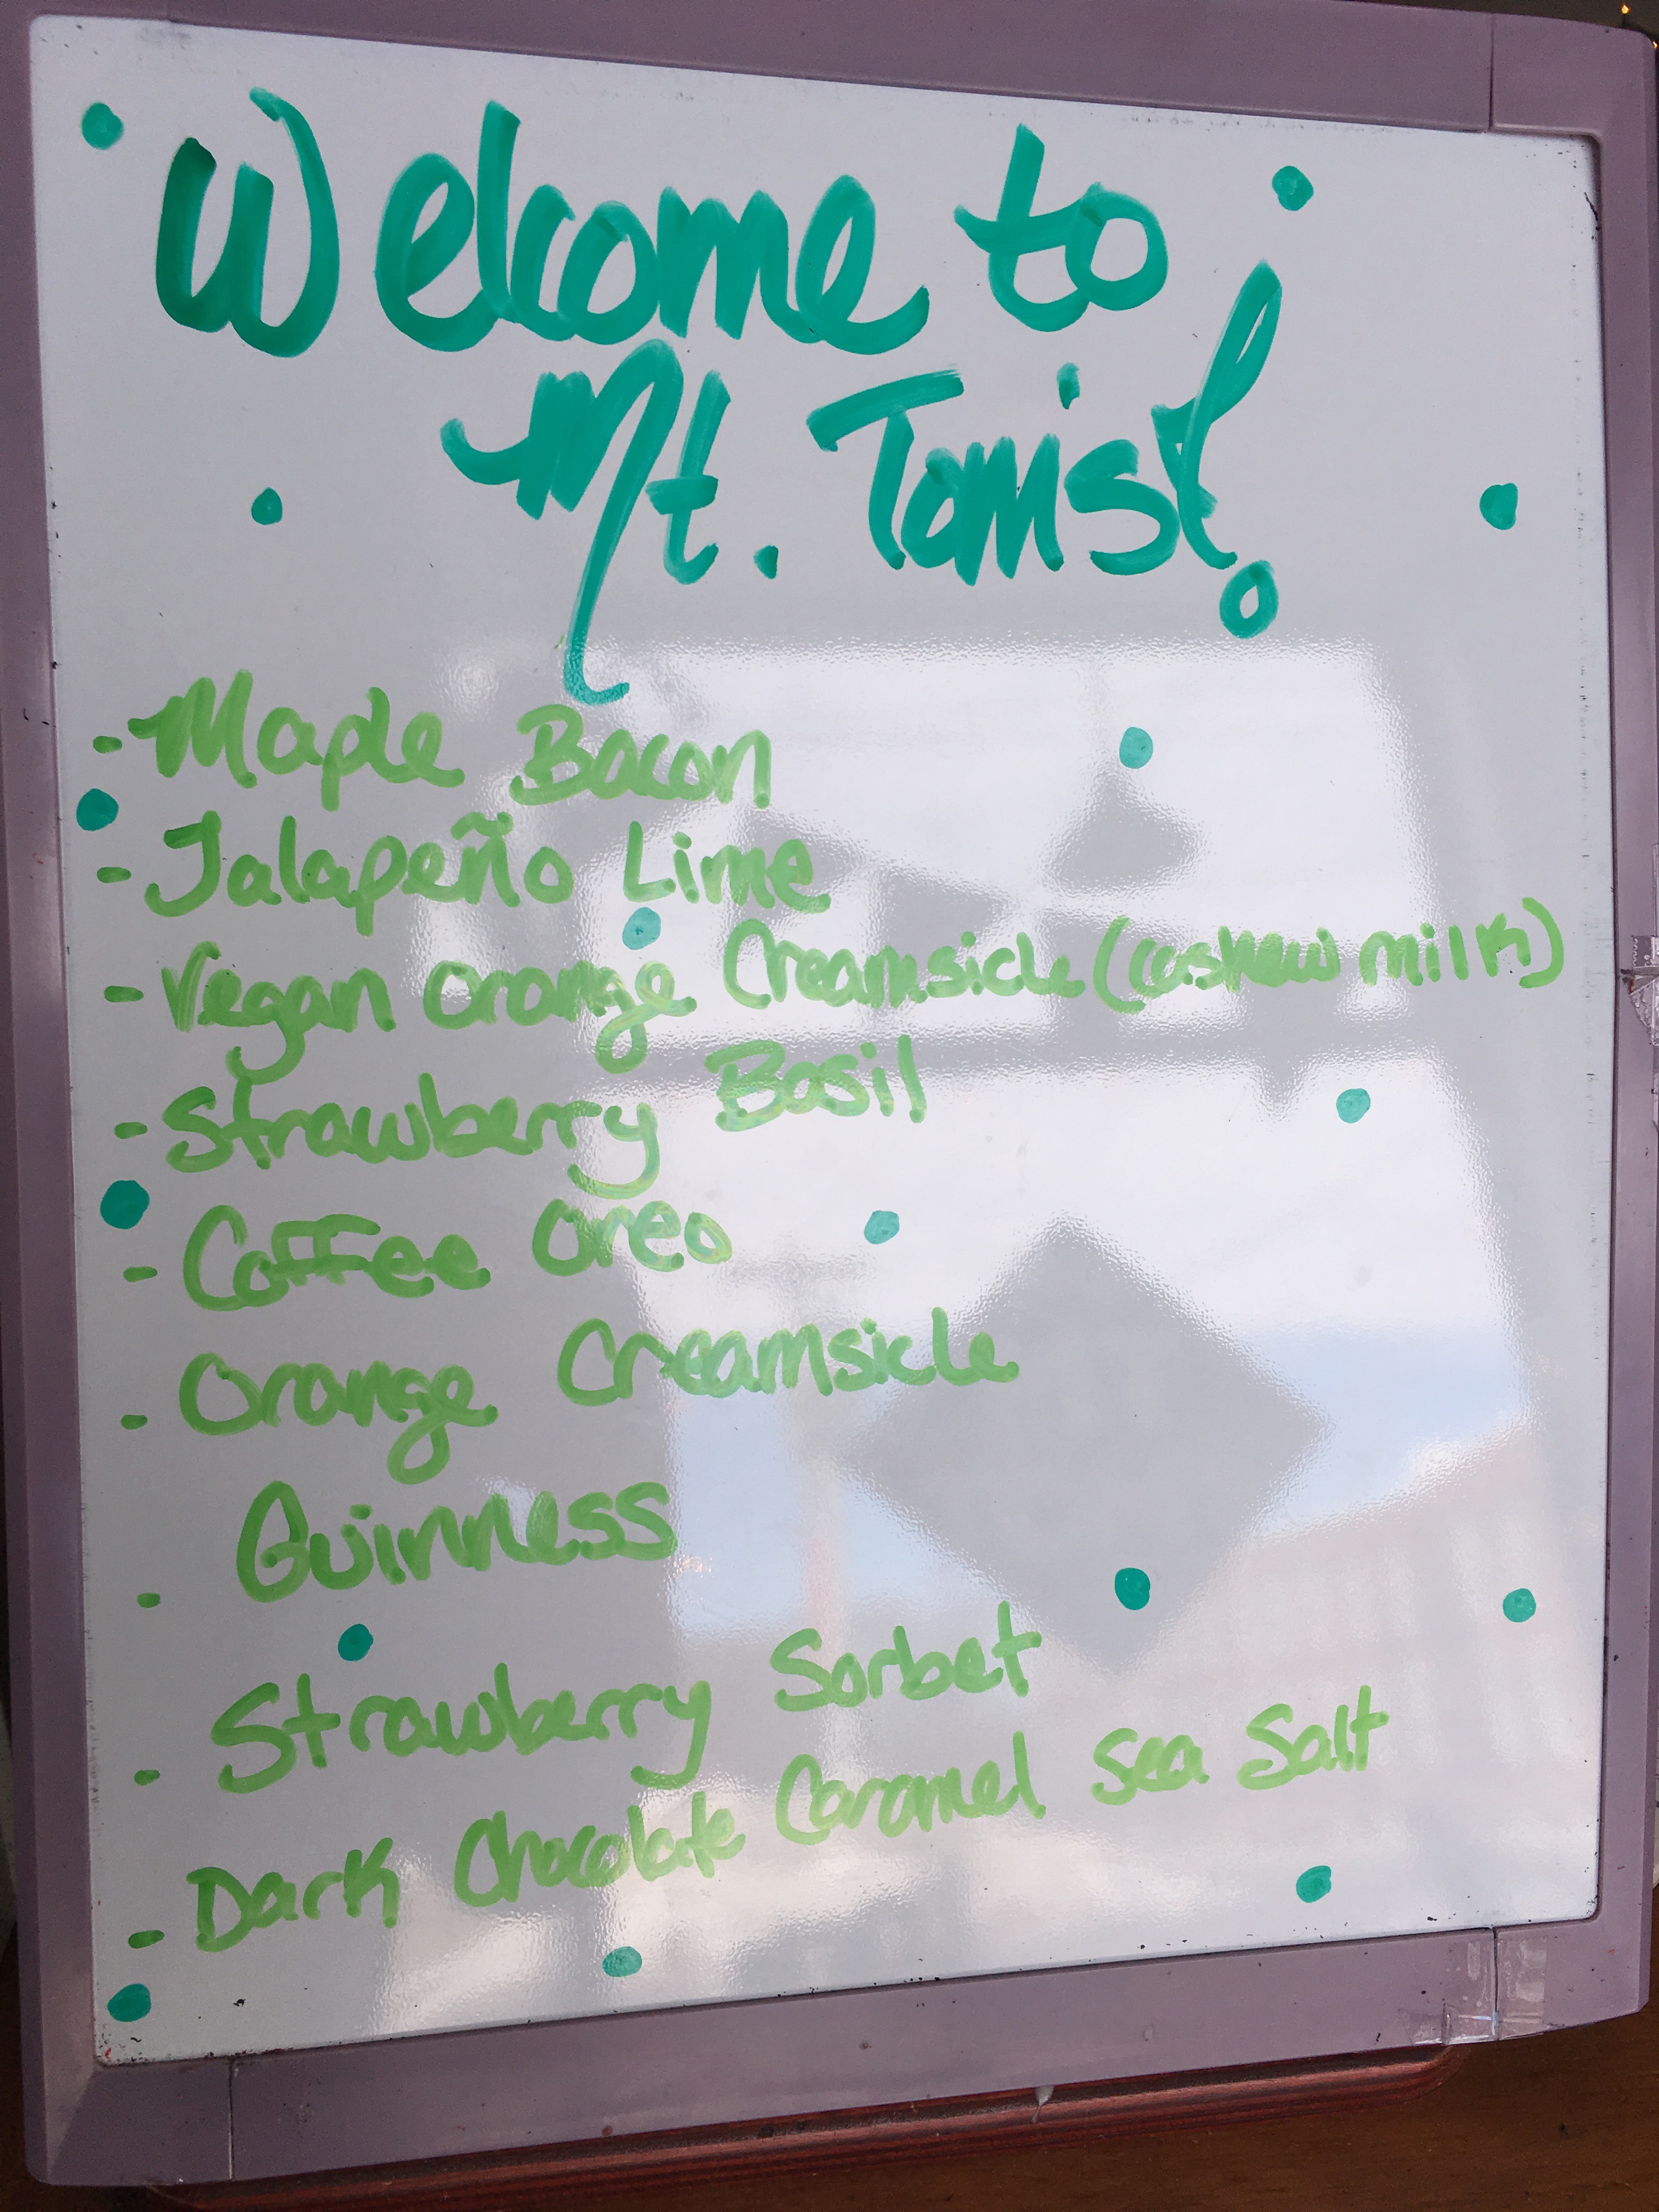 Welcome to
Mt. Tom's!
- Maple Bacon
- Jalapeño Lime
- Vegan Orange Creamsicle (cashew milk)
- Strawberry Basil
- Coffee Oreo
- Orange Creamsicle
- Guinness
- Strawberry Sorbet
- Dark Chocolate Caramel Sea Salt